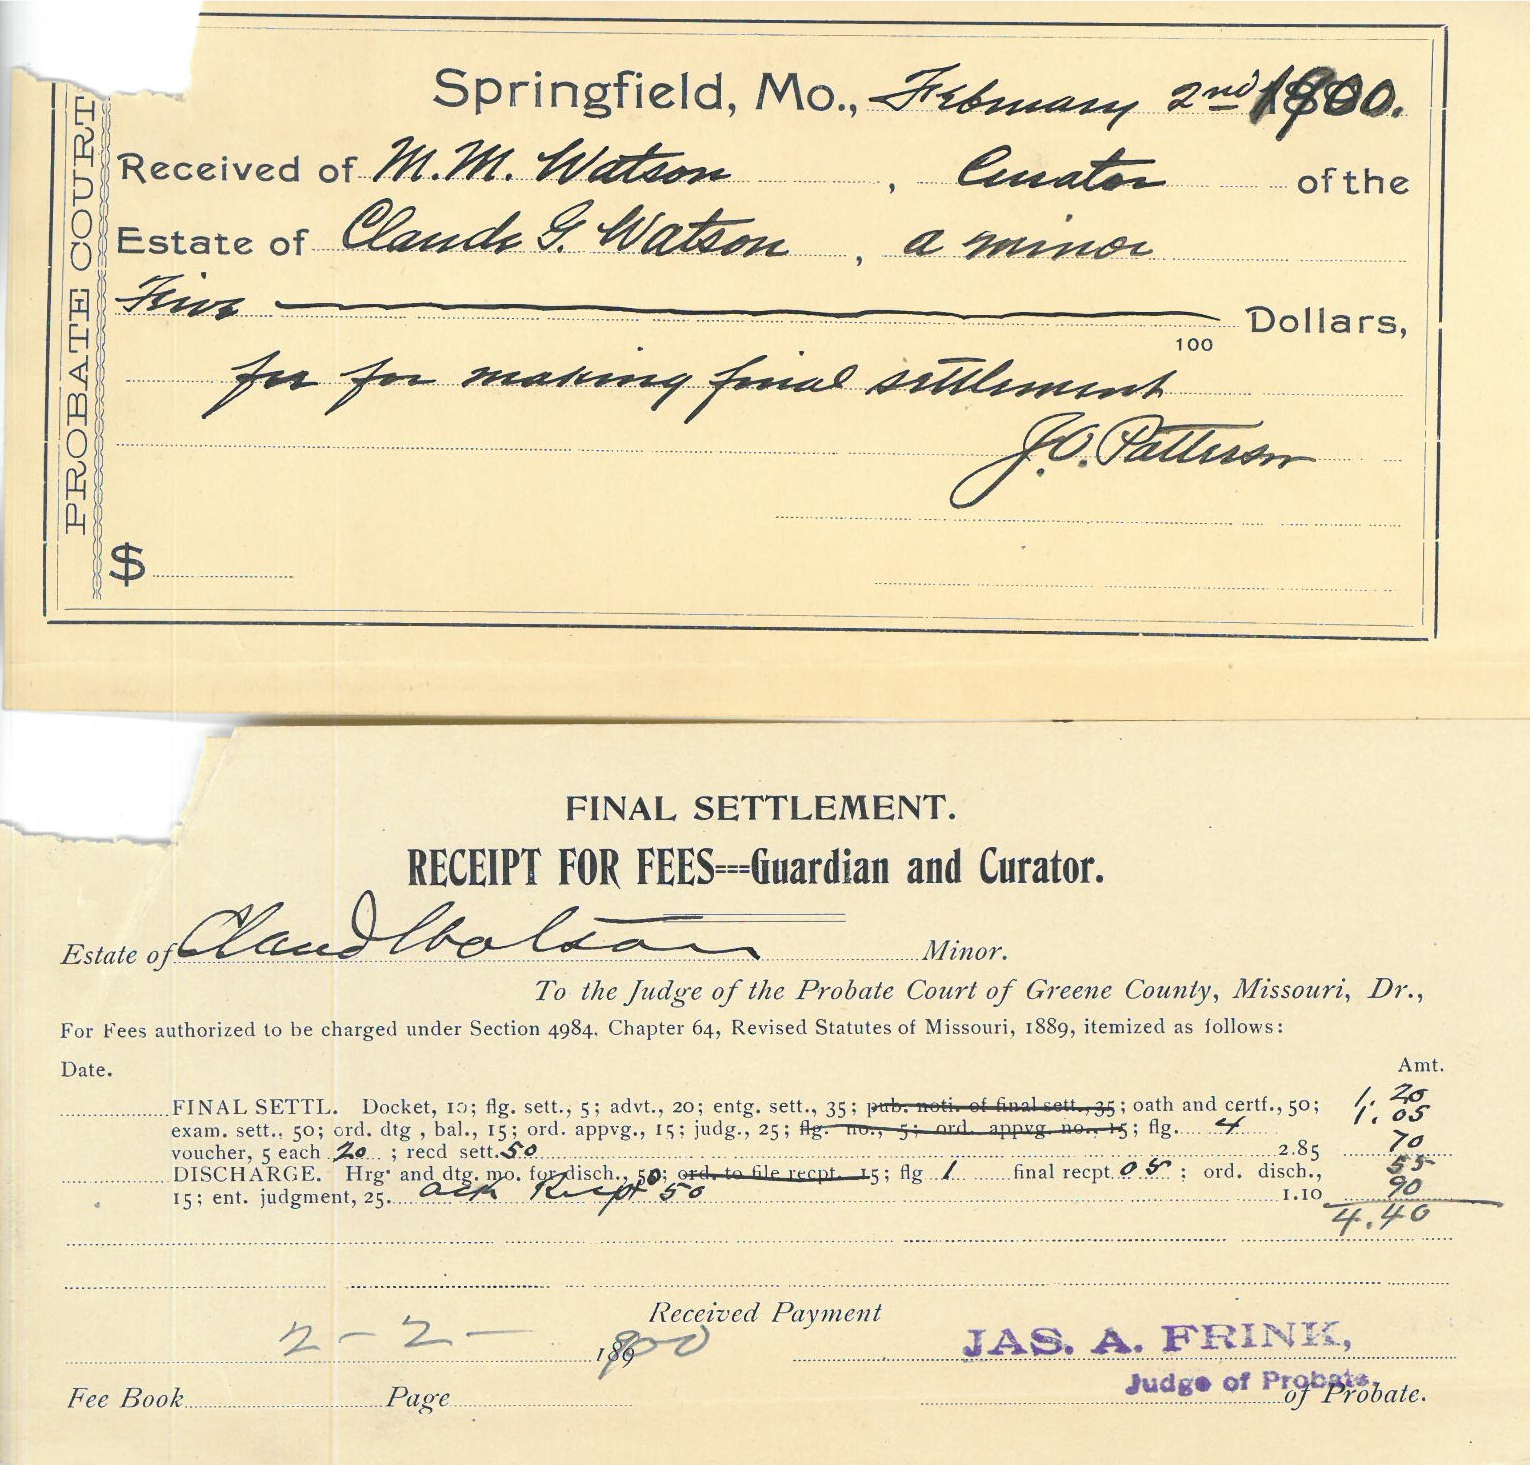 PROBATE COURT
Springfield, Mo., February 2nd 1900.
Received of M. M. Watson, Curator of the
Estate of Claude G. Watson, a minor
Five Dollars,
100
fee for making final settlement
J.O. Patterson
$
FINAL SETTLEMENT.
RECEIPT FOR FEES===Guardian and Curator.
Estate of Claud Watson Minor.
To the Judge of the Probate Court of Greene County, Missouri, Dr.,
For Fees authorized to be charged under Section 4984, Chapter 64, Revised Statutes of Missouri, 1889, itemized as follows:
Date. Amt.
FINAL SETTL. Docket, 10; flg. sett., 5; advt., 20; entg. sett., 35; pub. noti. of final sett., 35; oath and certf., 50; 1.20
exam. sett., 50; ord. dtg, bal., 15; ord. appvg., 15; judg., 25; flg. no., 5; ord. appvg. no., 15; flg. 4 1.05
voucher, 5 each 20; recd sett. 50 2.85 70
DISCHARGE. Hrg. and dtg. mo. for disch., 50; ord. to file recpt. 15; flg 1 final recpt 05; ord. disch., 55
15; ent. judgment, 25. ack Recpt 50 1.10 90
4.40
Received Payment
2-2- 1900 JAS. A. FRINK,
Judge of Probate.
Fee Book Page of Probate.